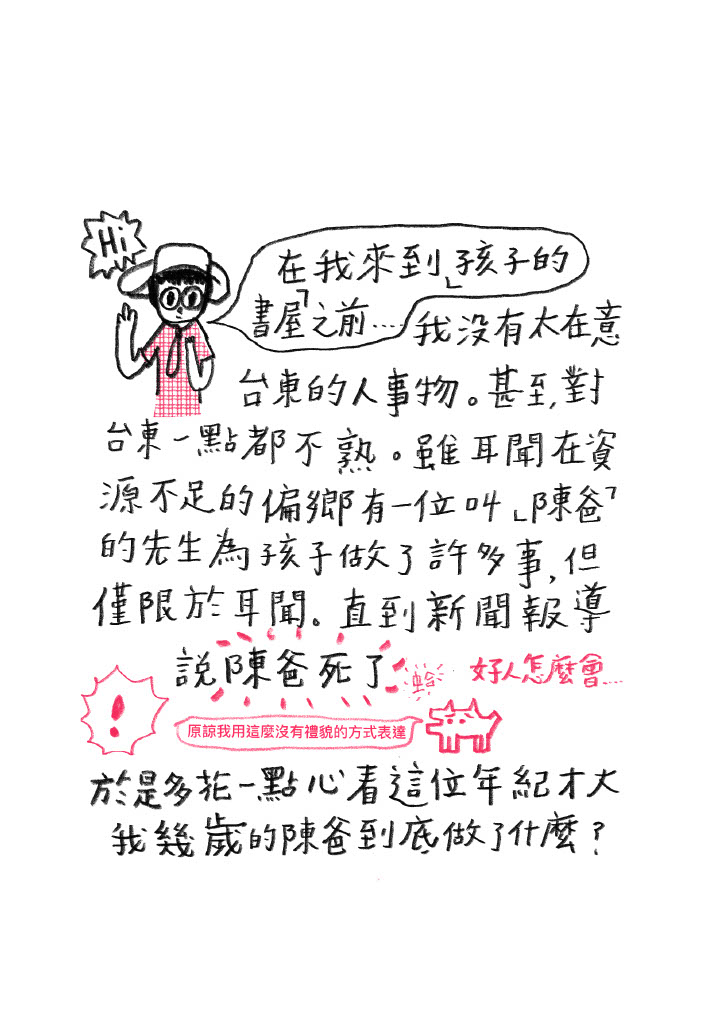 Hi
在我來到「孩子的
書屋」之前....我没有太在意
台東的人事物。甚至,對
台東一點都不熟。雖耳聞在資
源不足的偏鄉有一位叫「陳爸」
的先生為孩子做了許多事,但
僅限於耳聞。直到新聞報導
說陳爸死了
蛤
好人怎麼會...
!
原諒我用這麼沒有禮貌的方式表達
於是多花一點心看這位年紀才大
我幾歲的陳爸到底做了什麼?